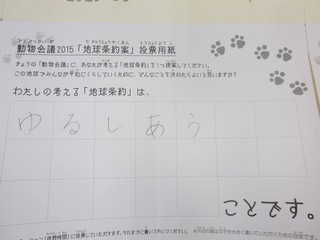 動物会議2015「地球条約案」投票用紙
きょうの「動物会議」に、あなたが考える「地球条約」を1つ提案してください。
この地球でみんなが平和にくらしていくために、どんなことを決めたらよいと思いますか?
わたしの考える「地球条約」は、
ゆるしあう
ことです。